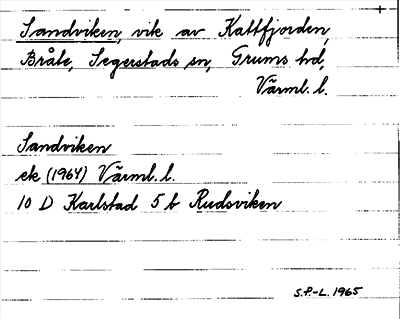 Sandviken, vik av Kattfjorden,
Bråte, Segerstads sn, Grums hd,
Värml. l.
Sandviken
ek (1964) Värml. l.
10 D Karlstad 5 b Rudsviken
S.P-L. 1965